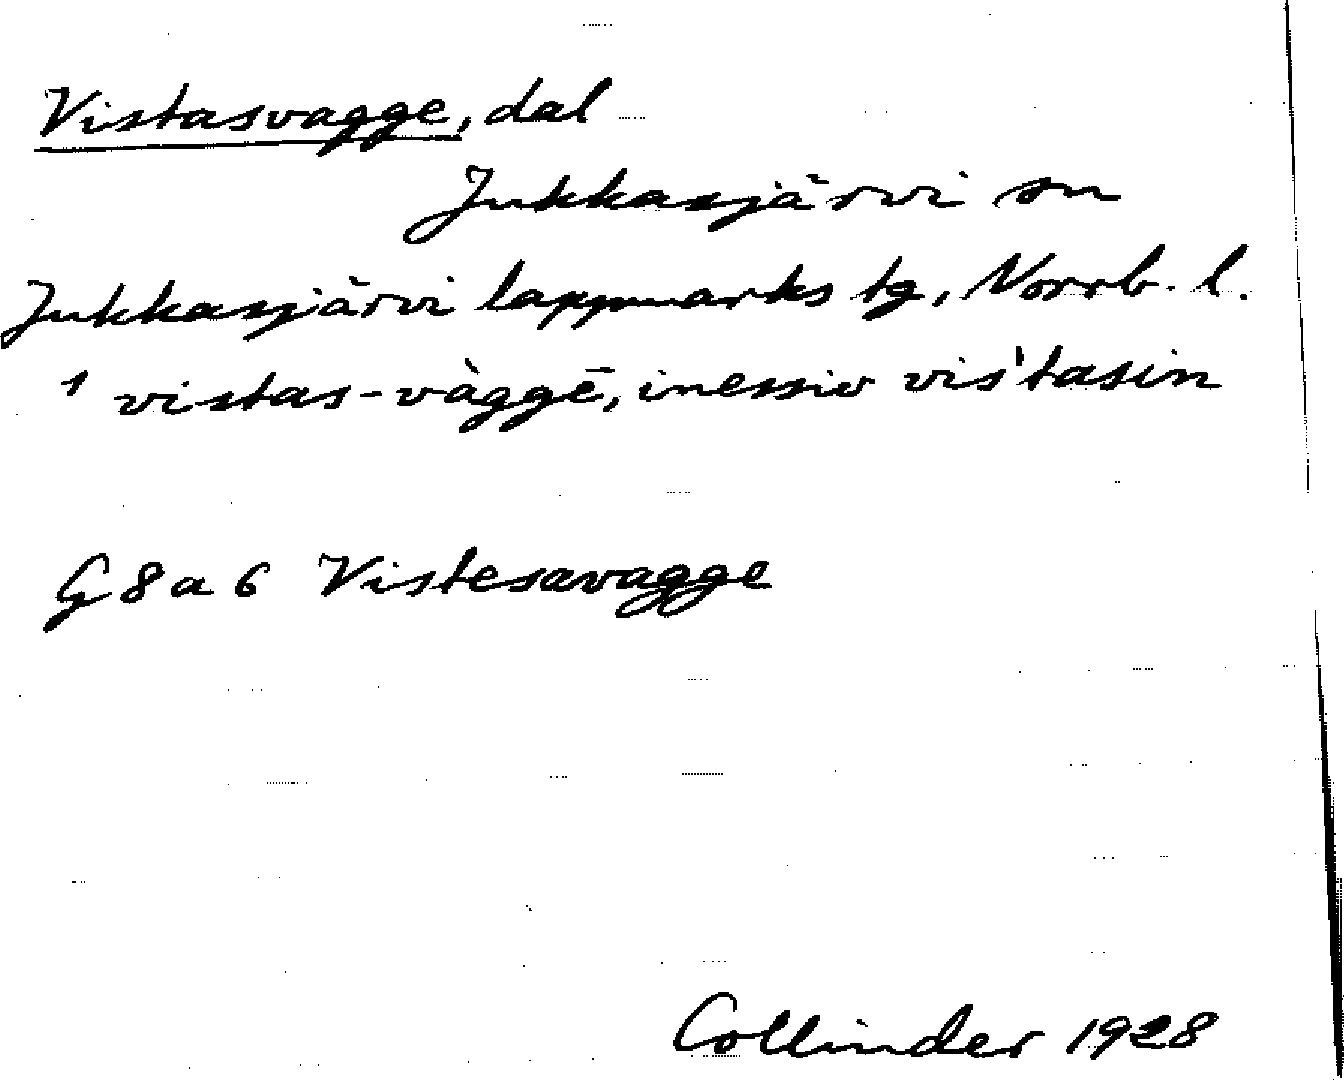 Vistasvagge, dal
Jukkasjärvi sn
Jukkasjärvi lappmarks tg, Norrb. l.
1 vistas-vàggē, inessiv vis'tasin
G 8 a 6 Vistesavagge
Collinder 1928